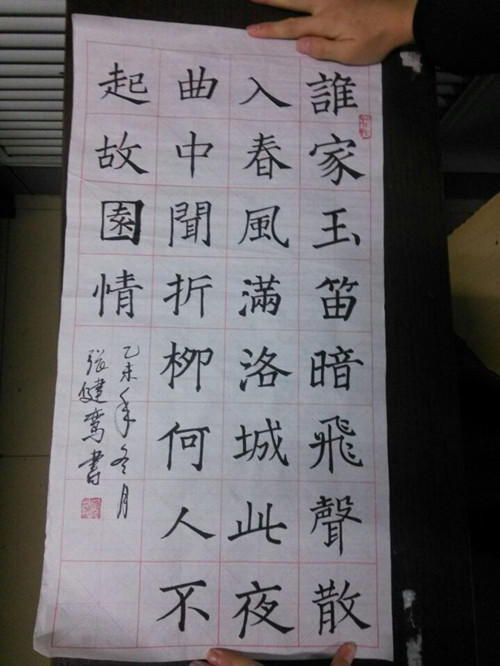 誰家玉笛暗飛聲散
入春風滿洛城此夜
曲中聞折柳何人不
起故園情
乙未年冬月
張健鸾書